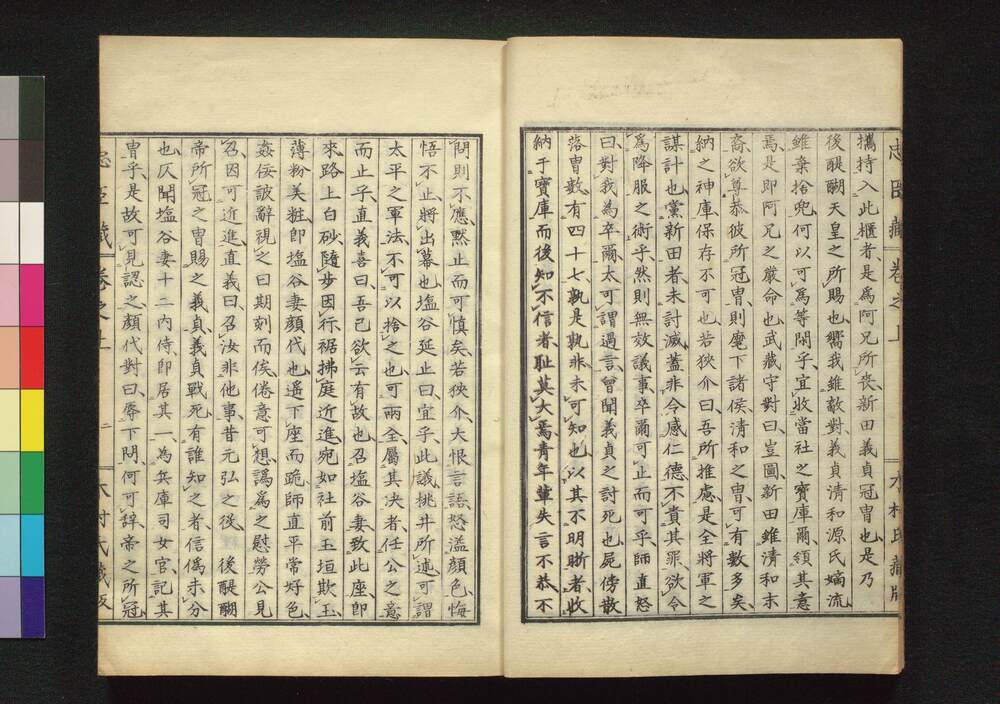 忠臣藏 卷之上 木村氏藏版
攜持入此櫃者是爲阿兄所喪新田義貞冠冑也是乃
後醍醐天皇之所賜也嚮我雖敵對義貞清和源氏嫡流
雖棄捨兜何以可爲等閑乎宜收當社之寶庫爾領其意
焉是即阿兄之嚴命也武藏守對曰豈圖新田雖清和末
裔欲尊恭彼所冠冑則麾下諸侯清和之冑可有數多矣
納之神庫保存不可也若狹介曰吾所推慮是全將軍之
謀計也黨新田者未討滅蓋非令感仁德不責其罪欲令
爲降服之術乎然則無效議事卒爾可止而可乎師直怒
曰對我為卒爾太可謂過言曾聞義貞之討死也屍傍散
落冑數有四十七孰是孰非未可知也以其不明晰者收
納于寶庫而後知不信者耻莫大焉青年輩失言不恭不
問則不應默止而可慎矣若狹介大恨言語怒溢顏色悔
悟不止將出幕也塩谷延止曰宜乎此議桃井所述可謂
太平之軍法不可以捨之也可兩全屬其决者任公之意
而止乎直義喜曰吾已欲云有故也召塩谷妻致此座即
來路上白砂隨步因行裾拂庭近進宛如社前玉垣欺玉
薄粉美粧即塩谷妻顏代也遥下座而跪師直平常好色
姦佞詖辭視之曰期刻而俟倦意可想謁爲之慰勞公見
召因可近進直義曰召汝非他事昔元弘之役 後醍醐
帝所冠之冑賜之義貞義貞戰死有誰知之者信僞未分
也仄聞塩谷妻十二内侍即居其一為兵庫司女官記其
冑乎是故可見認之顏代對曰辱下問何可辞帝之所冠
忠臣藏 卷之上 二 木村氏藏版